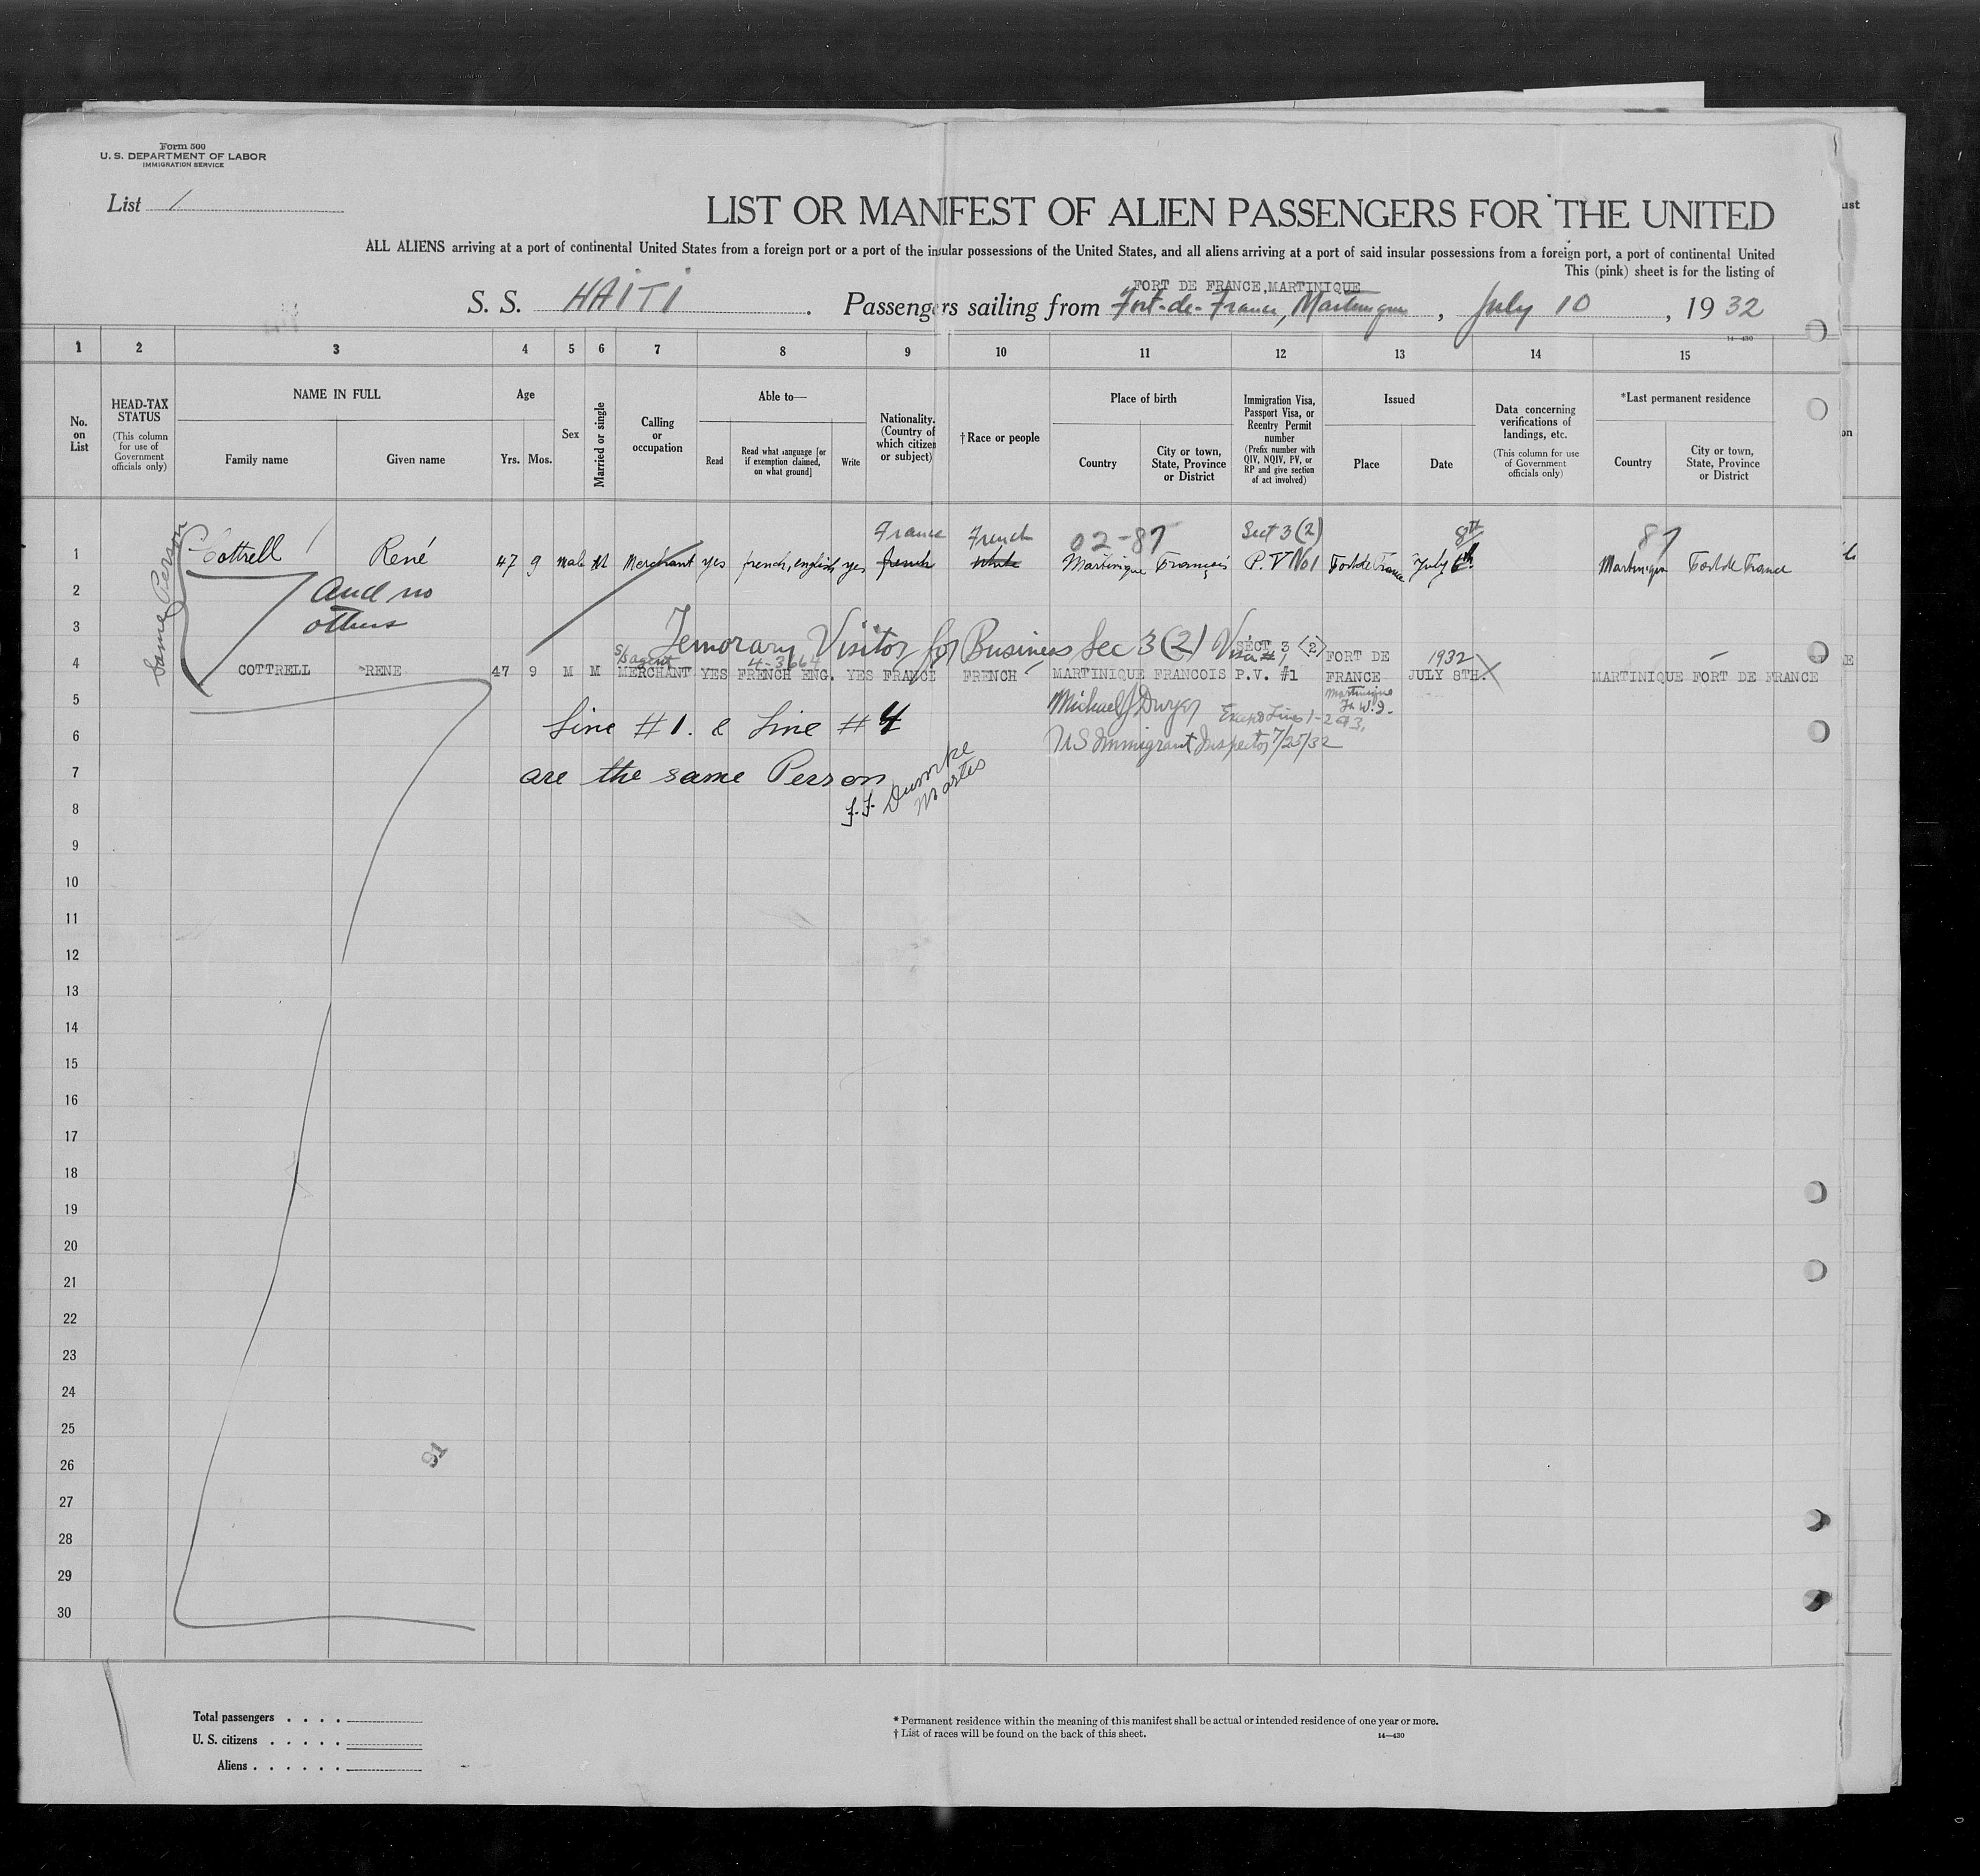 Form 500
U. S. DEPARTMENT OF LABOR
IMMIGRATION SERVICE
List 1
LIST OR MANIFEST OF ALIEN PASSENGERS FOR THE UNITED
ALL ALIENS arriving at a port of continental United States from a foreign port or a port of the insular possessions of the United States, and all aliens arriving at a port of said insular possessions from a foreign port, a port of continental United
This (pink) sheet is for the listing of
FORT DE FRANCE, MARTINIQUE
S. S. HAITI . Passengers sailing from Fort-de-France, Martinique , July 10 , 1932
14—430
1 2 3 4 5 6 7 8 9 10 11 12 13 14 15
No. on List
HEAD-TAX STATUS (This column for use of Government officials only)
NAME IN FULL
Family name Given name
Age
Yrs. Mos.
Sex
Married or single
Calling or occupation
Able to—
Read Read what language [or if exemption claimed, on what ground] Write
Nationality. (Country of which citizen or subject)
†Race or people
Place of birth
Country City or town, State, Province or District
Immigration Visa, Passport Visa, or Reentry Permit number (Prefix number with QIV, NQIV, PV, or RP and give section of act involved)
Issued
Place Date
Data concerning verifications of landings, etc. (This column for use of Government officials only)
*Last permanent residence
Country City or town, State, Province or District
France French 02-87 Sect 3(2) 8th 87
1 Cottrell René 47 9 male M Merchant yes french, english yes french white Martinique François P.V No 1 Fort de France July Martinique Fort de France
Same Person
2 And no
3 others
Temorary Visitor for Business Sec 3(2) Visa #1
SECT 3 (2) FORT DE 1932
S/S agent 4-3664
4 COTTRELL RENE 47 9 M M MERCHANT YES FRENCH ENG. YES FRANCE FRENCH MARTINIQUE FRANCOIS P.V. #1 FRANCE JULY 8TH. MARTINIQUE FORT DE FRANCE
Martinique
F. W. I.
5 Michael J Dwyer
Line #1. & Line #4
6 US Immigrant Inspector 7/25/32
7 are the same Person
8
9
10
11
12
13
14
15
16
17
18
19
20
21
22
23
24
25
91
26
27
28
29
30
Total passengers . . . .
U. S. citizens . . . . .
Aliens . . . . . .
* Permanent residence within the meaning of this manifest shall be actual or intended residence of one year or more.
† List of races will be found on the back of this sheet.
14—430